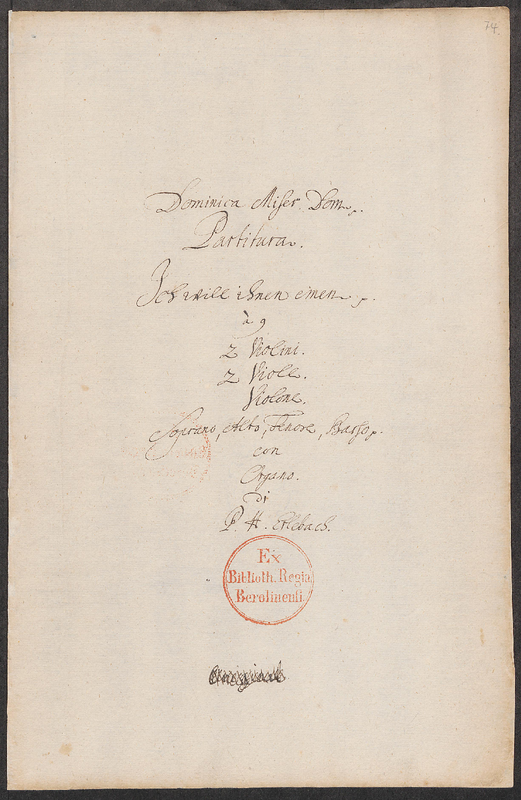 74.
Dominica Miser. Dom.
Partitura.
Ich will ihnen einen
à 9
2 Violini.
2 Viole.
Violone.
Soprano, Alto, Tenore, Basso.
con
Organo.
di
P. H. Erlebach.
Ex
Biblioth. Regia
Berolinensi.